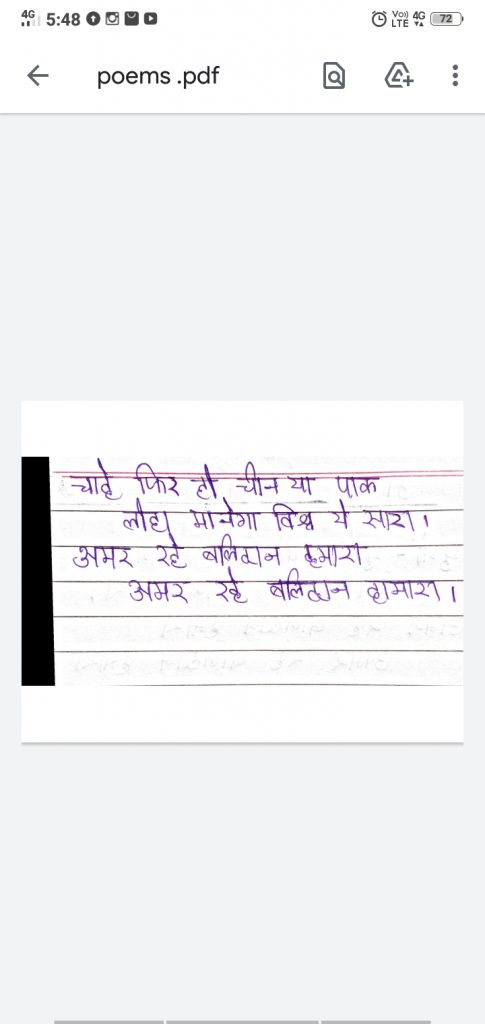 4G 5:48 Vo)) LTE 4G 72
poems .pdf
चाहे फिर हो चीन या पाक
लौहा मानेगा विश्व ये सारा।
अमर रहे बलिदान हमारा
अमर रहे बलिदान हामारा।